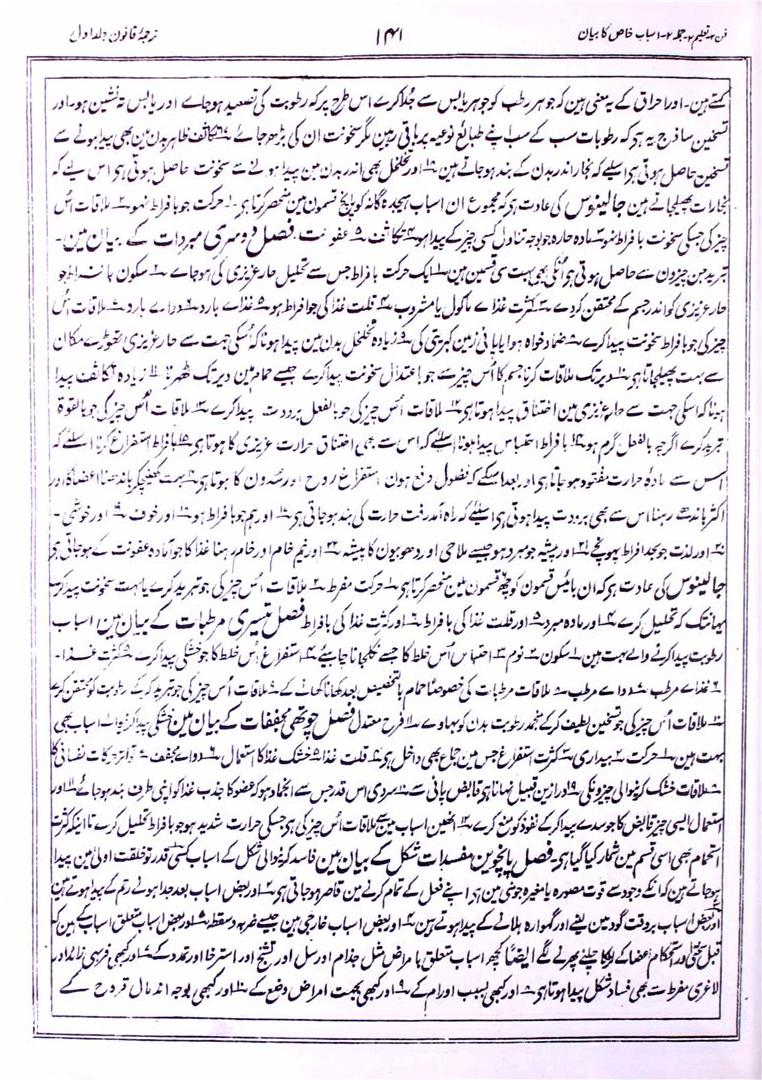 فن ۲ تعلیم ۲ جملہ ۲ - اسباب خاص کا بیان ۱۴۱ ترجمۂ قانون جلد اول
کہتے ہین۔ اور احراق کے یہ معنی ہین کہ جوہر رطب کو جوہر یابس سے جدا کرے اس طرح پر کہ رطوبت کی تصعید ہو جاے اور یابس تہ نشین ہو۔ اور
تسخین ساذج یہ ہو کہ رطوبات سب کے سب اپنے طبائع نوعیہ پر باقی رہین مگر سخونت ان کی بڑھ جاے ۱۷ تکاثف ظاہر بدن مین بھی پیدا ہونے سے
تسخین حاصل ہوتی ہی اسلیے کہ بخار اندر بدن کے بند ہو جاتے ہین ۱۸ اور تخلخل بھی اندر بدن مین پیدا ہونے سے سخونت حاصل ہوتی ہی اس لیے کہ
بخارات پھیل جاتے ہین جالینوس کی عادت ہی کہ مجموع ان اسباب ہیجدہ گانہ کو پانچ قسمون مین منحصر کرتا ہی ۱ حرکت جو با فراط نہو ۲ ملاقات اُس
چیز کی جسکی سخونت با فراط نہو ۳ مادہ حارہ جو بوجہ تناول کسی چیز کے پیدا ہو ۴ تکاثف ۵ عفونت۔ فصل دوسری مبردات کے بیان مین۔
تبرید جن چیزون سے حاصل ہوتی ہی اُنکی بھی بہت سی قسمین ہین ۱ ایک حرکت با فراط جس سے تحلیل حار غریزی کی ہو جاے ۲ سکون با فراط جو
حار غریزی کو اندر جسم کے محتقن کر دے ۳ کثرت غذاے ماکول یا مشروب ۴ قلت غذا کی جو افراط ہو ۵ غذاے بارد ۶ دواے بارد ۷ ملاقات اُس
چیز کی جو با فراط سخونت پیدا کرے ۸ ضماد خواہ ہوا یا پانی زمین کبریتی کی ۹ زیادہ تخلخل بدن مین پیدا ہونا کہ اُسکی جہت سے حار غریزی تھوڑے مکان
سے بہت پھیل جاتا ہی ۱۰ دیر تک ملاقات کرنا جسم کا اُس چیز سے جو باعتدال سخونت پیدا کرے جیسے حمام مین دیر تک ٹھہرنا ۱۱ زیادہ تکاثف پیدا
ہونا کہ اسکی جہت سے حار غریزی مین اختناق پیدا ہوتا ہی ۱۲ ملاقات اُس چیز کی جو بالفعل برودت پیدا کرے ۱۳ ملاقات اُس چیز کی جو بالقوۃ
تبرید کرے اگرچہ بالفعل گرم ہو ۱۴ با فراط احتباس پیدا ہونا اسلیے کہ اس سے بھی اختناق حرارت غریزی کا ہوتا ہی ۱۵ با فراط استفراغ کرنا اسلیے کہ
اس سے مادہ حرارت مفقود ہو جاتا ہی اور بعد اسکے کہ فضول دفع ہون استفراغ روح اور سُدون کا ہوتا ہی ۱۶ بہت کھینچ کر باندھنا اعضا کا اور
اکثر باندھے رہنا اس سے بھی برودت پیدا ہوتی ہی اسلیے کہ راہ آمدورفت حرارت کی بند ہو جاتی ہی ۱۷ اور ہم جو با فراط ہو ۱۸ اور خوف ۱۹ اور خوشی۔
۲۰ اور لذت جو بحد افراط پہونچے ۲۱ اور پیشہ جو مبرد ہو جیسے ملاحی اور دھوبیون کا پیشہ ۲۲ اور نیم خام اور خام رہنا غذا کا جو آمادہ عفونت کے ہو جاتی ہی
جالینوس کی عادت ہی کہ ان بائیس قسمون کو چھ قسمون مین منحصر کرتا ہی ۱ حرکت مفرطہ ۲ ملاقات اُس چیز کی جو تبرید کرے یا بہت سخونت پیدا کرے
یہانتک کہ تحلیل کرے ۴ اور مادہ مبرد ۵ اور قلت غذا کی با فراط ۶ اور کثرت غذا کی با فراط فصل تیسری مرطبات کے بیان مین اسباب
رطوبت پیدا کرنے والے بہت ہین ۱ سکون ۲ نوم ۳ احتباس اُس خلط کا جسے نکل جانا چاہیے ۴ استفراغ اُس خلط کا جو خشکی پیدا کرے ۵ کثرت غذا۔
۶ غذاے مرطب ۷ دواے مرطب ۸ ملاقات مرطبات کی خصوصاً حمام بالتخصیص بعد کھانا کھانے کے ۹ ملاقات اُس چیز کی جو تبرید کر کے رطوبت کو محتقن کرے
۱۰ ملاقات اُس چیز کی جو تسخین لطیف کر کے منجمد رطوبت بدن کو بہاوے ۱۱ فرح معتدل فصل چوتھی مجففات کے بیان مین خشکی پیدا کرنیوالے اسباب بھی
بہت ہین ۱ حرکت ۲ بیداری ۳ کثرت استفراغ جس مین جماع بھی داخل ہی ۴ قلت غذا ۵ خشک غذا کا استعمال ۶ دواے مجفف ۷ تواتر حرکات نفسانی کا
۸ ملاقات خشک کرنیوالی چیزونکی ۹ اور از ین قبیل نہانا ہی قابض پانی سے ۱۰ سردی اس قدر جس سے انجماد ہو کر عضو کا جذب غذا کو اپنی طرف بند ہو جاے ۱۱ اور
استعمال ایسی چیز قابض کا جو سدے پیدا کر کے نفوذ کو منع کرے ۱۲ انھین اسباب مین سے ملاقات اُس چیز کی ہی جسکی حرارت شدید ہو جو با فراط تحلیل کرے تا اینکہ کثرت
استحمام بھی اسی قسم مین شمار کیا گیا ہی۔ فصل پانچوین مفسدات شکل کے بیان مین فاسد کرنیوالی شکل کے اسباب کسی قدر تو خلقت اولی مین پیدا
ہو جاتے ہین کہ انکے وجود سے قوت مصورہ یا مغیرہ جو منی مین ہی اپنے فعل کے تمام کرنے مین قاصر ہو جاتی ہی ۲ اور بعض اسباب بعد جدا ہونے رحم کے پیدا ہوتے ہین
اور بعض اسباب بر وقت گود مین لینے اور گہوارہ ہلانے کے پیدا ہوتے ہین ۴ اور بعض اسباب خارجی ہین جیسے ضربہ و سقطہ ۵ اور بعض اسباب متعلق اسباب کے ہین کہ
قبل سختی اور استحکام اعضا کے لڑکا چلنے پھرنے لگے ایضاً کچھ اسباب متعلق بامراض مثل جذام اور سل اور تشنج اور استرخا اور تمدد کے ۷ اور کبھی فربہی زائد اور
لاغری مفرط سے بھی فساد شکل پیدا ہوتا ہی ۸ اور کبھی بسبب اورام کے ۹ اور کبھی بجہت امراض وضع کے ۱۰ اور کبھی بوجہ اندمال قروح کے